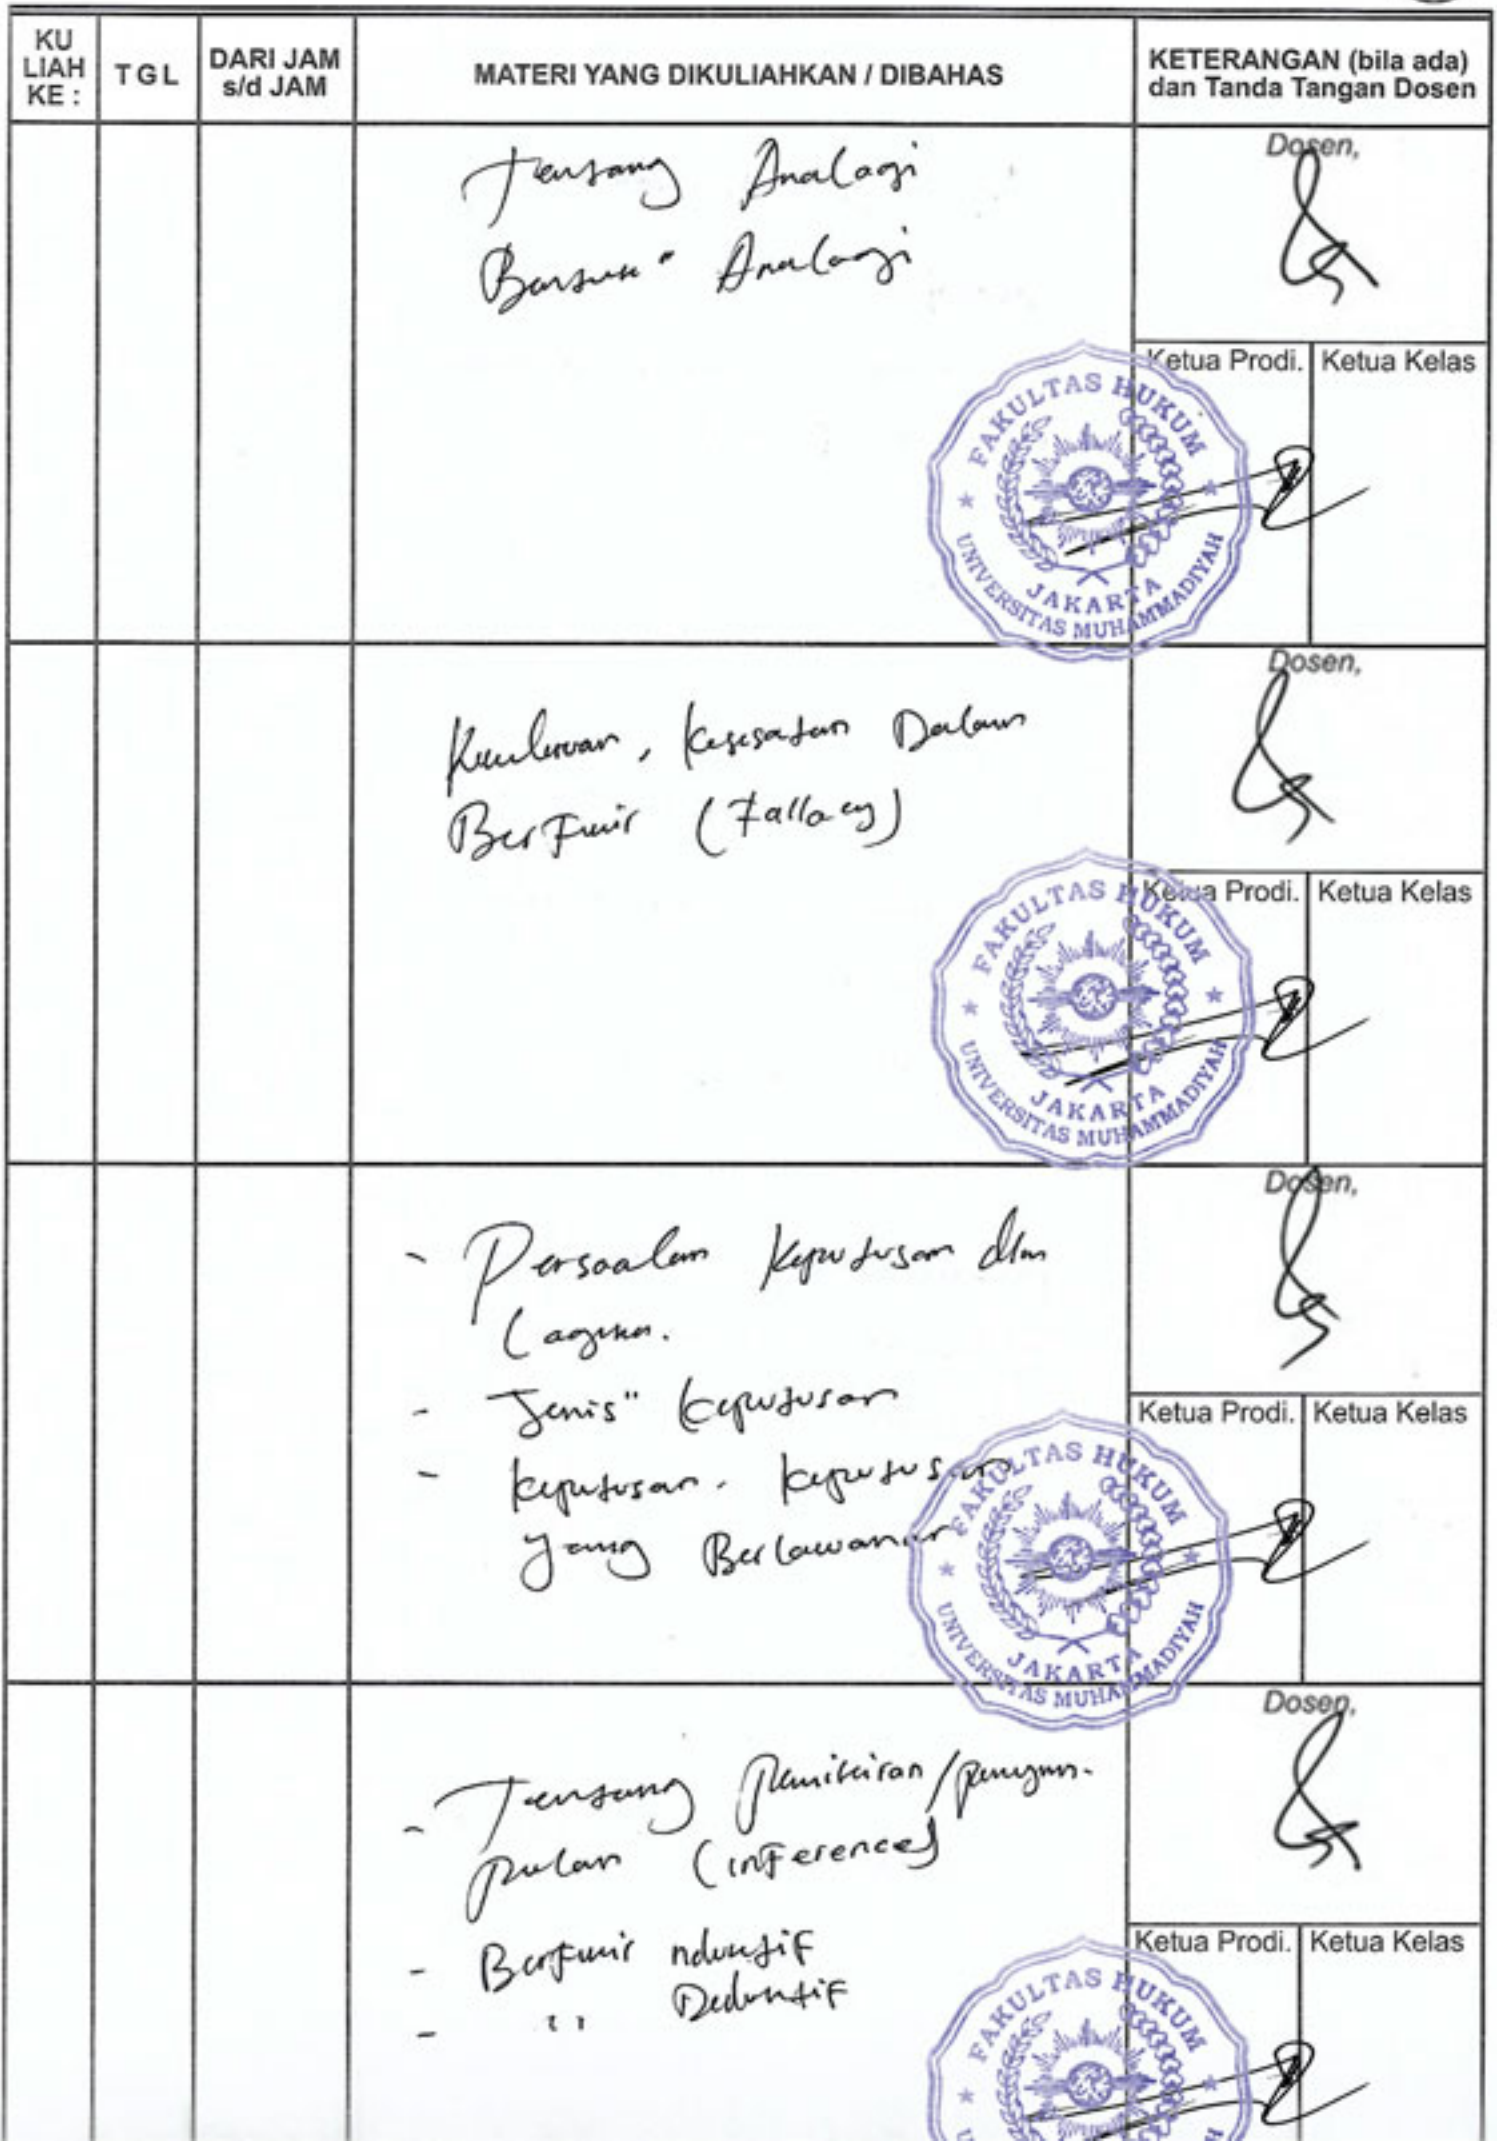 KU LIAH KE :
TGL
DARI JAM s/d JAM
MATERI YANG DIKULIAHKAN / DIBAHAS
KETERANGAN (bila ada)
dan Tanda Tangan Dosen
Tentang Analogi
Bentuk" Analogi
Dosen,
Ketua Prodi.
Ketua Kelas
FAKULTAS HUKUM
UNIVERSITAS MUHAMMADIYAH
JAKARTA
Kekeliruan, Kesesatan Dalam
Berfikir (Fallacy)
Dosen,
Ketua Prodi.
Ketua Kelas
FAKULTAS HUKUM
UNIVERSITAS MUHAMMADIYAH
JAKARTA
- Persoalan Keputusan dlm
Logika.
- Jenis" Keputusan
- Keputusan - Keputusan
yang Berlawanan
Dosen,
Ketua Prodi.
Ketua Kelas
FAKULTAS HUKUM
UNIVERSITAS MUHAMMADIYAH
JAKARTA
- Tentang Pemikiran/penyim-
pulan (inference)
- Berfikir nduktif
- " Deduktif
Dosen,
Ketua Prodi.
Ketua Kelas
FAKULTAS HUKUM